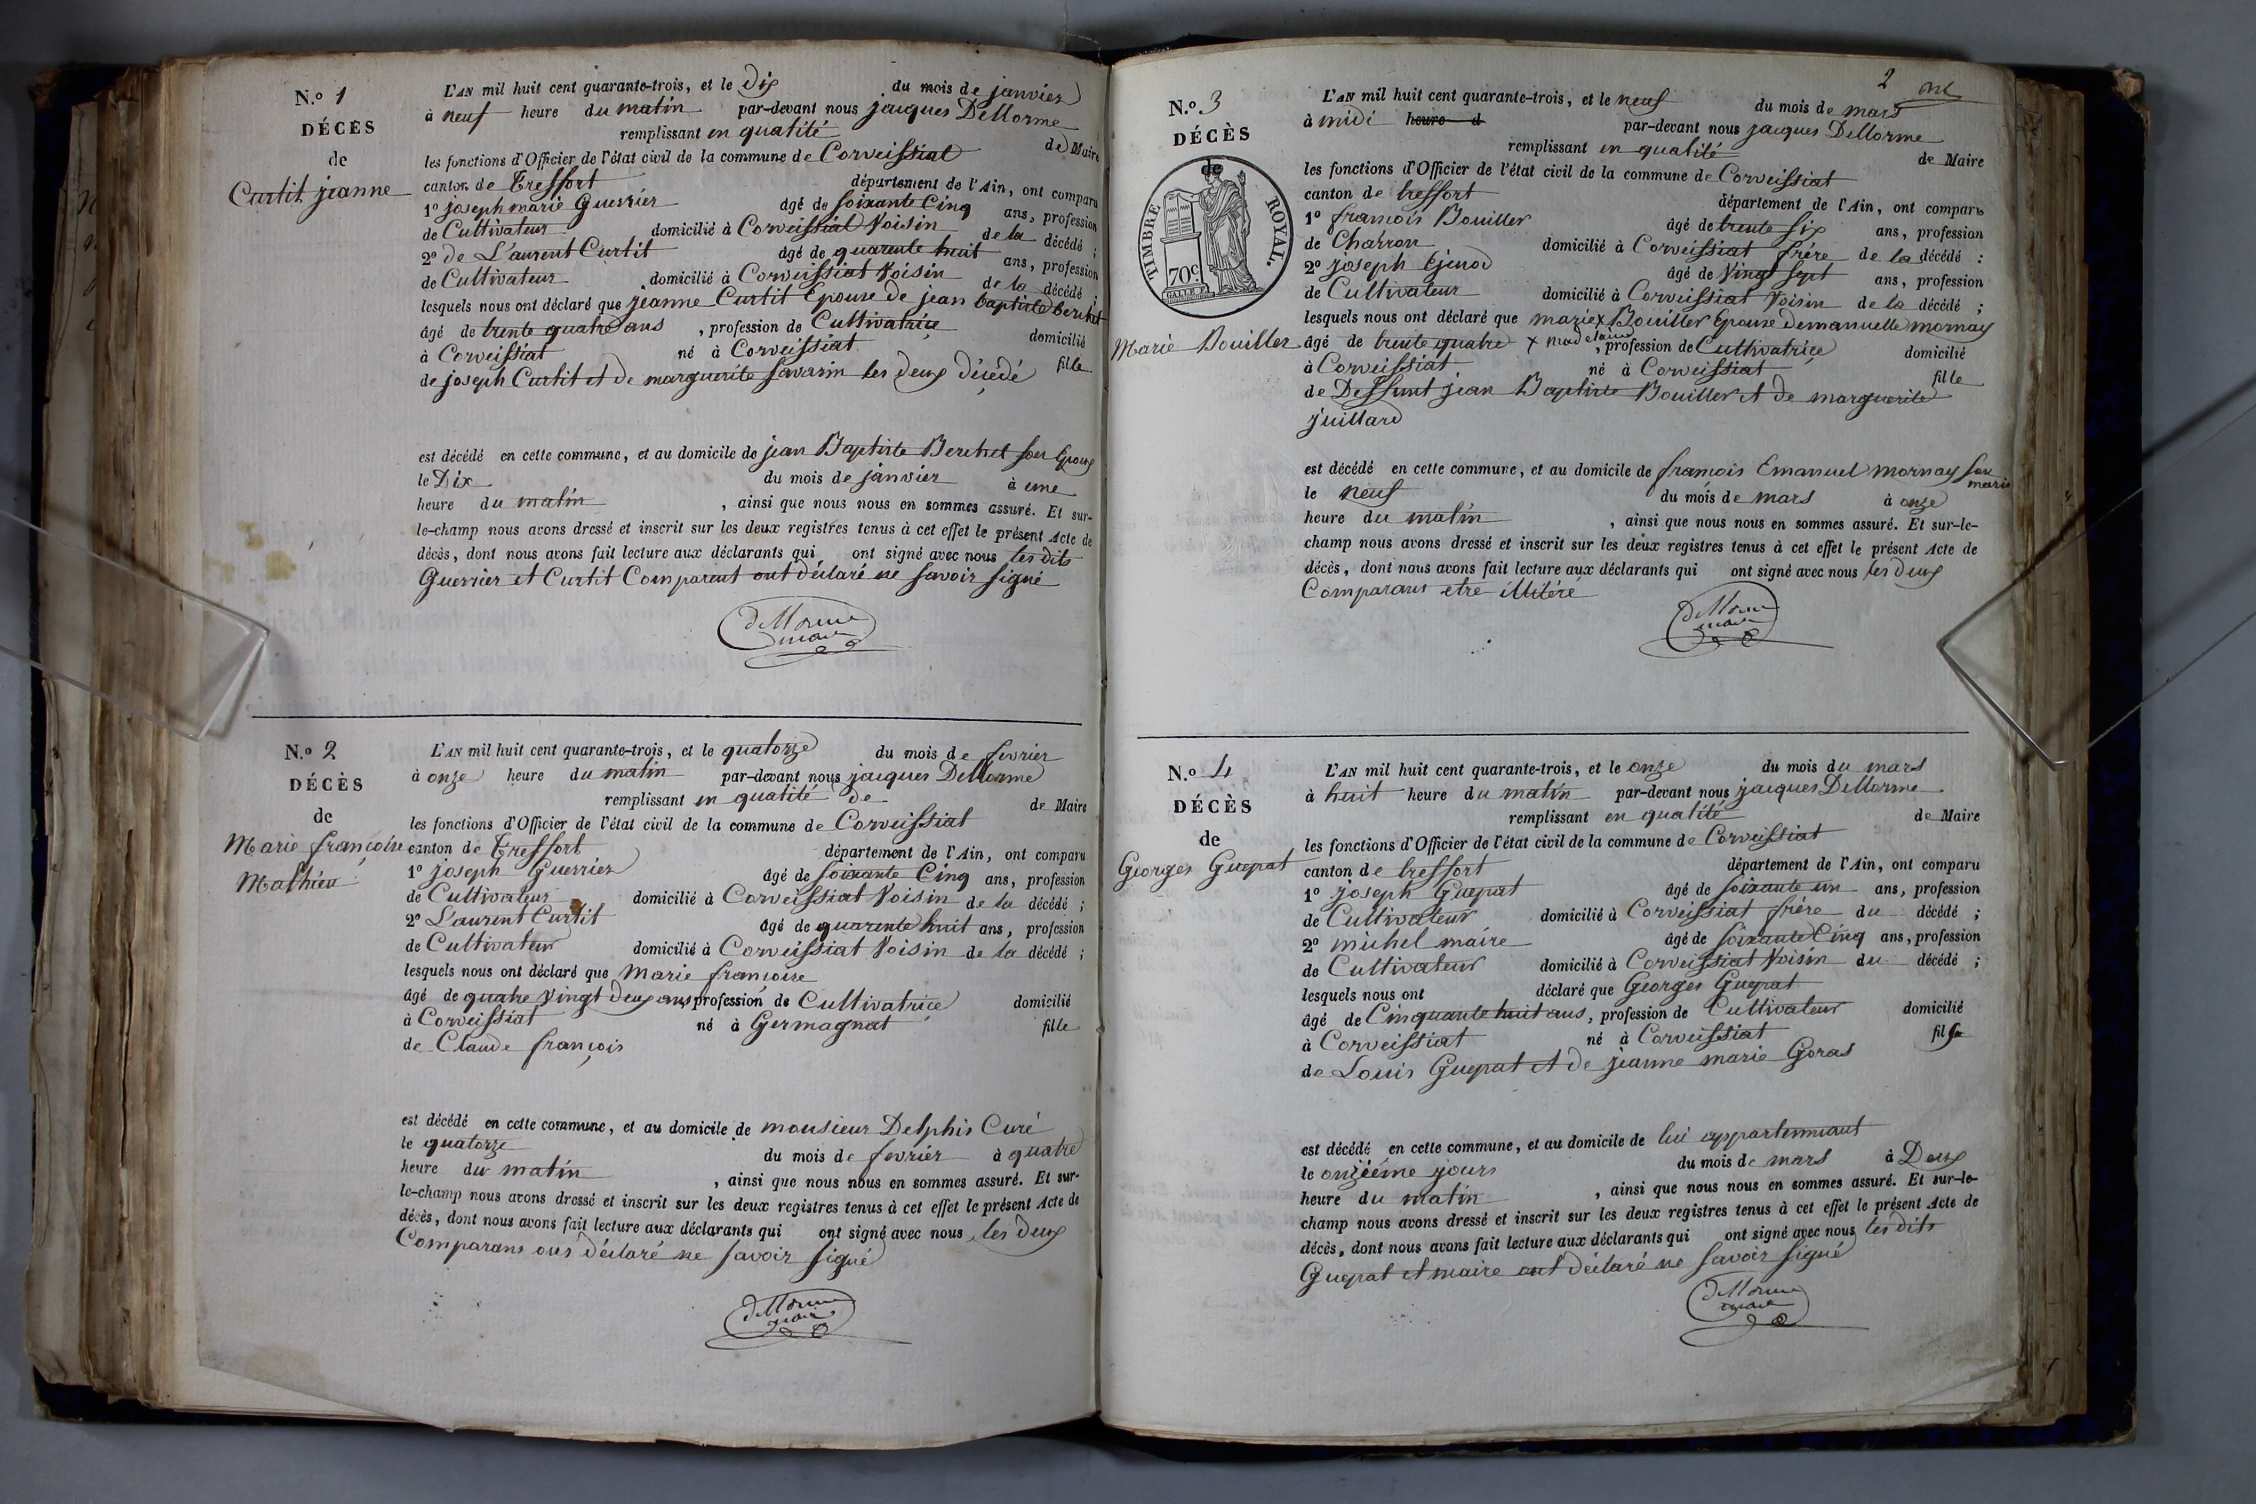 N.º 1
DÉCÈS
de
Curtit jeanne
L'AN mil huit cent quarante-trois, et le Dix du mois de janvier
à neuf heure du matin par-devant nous jacques Dellorme
remplissant en qualité de Maire
les fonctions d'Officier de l'état civil de la commune de Corveissiat
canton de Treffort département de l'Ain, ont comparu
1º joseph marie Guerrier âgé de soixante Cinq ans, profession
de Cultivateur domicilié à Corveissiat Voisin de la décédé ;
2º de L'aurent Curtit âgé de quarente huit ans, profession
de Cultivateur domicilié à Corveissiat Voisin de la décédé ;
lesquels nous ont déclaré que jeanne Curtit Epouse de jean baptiste Berthet
âgé de trente quatre ans , profession de Cultivatrice domicilié
à Corveissiat né à Corveissiat fille
de joseph Curtit et de marguerite savarin les deux décedé
est décédé en cette commune, et au domicile de jean Baptiste Berthet son Epoux
le Dix du mois de janvier à une
heure du matin , ainsi que nous nous en sommes assuré. Et sur-
le-champ nous avons dressé et inscrit sur les deux registres tenus à cet effet le présent Acte de
décès, dont nous avons fait lecture aux déclarants qui ont signé avec nous les dits
Guerrier et Curtit Comparent ont déclaré ne savoir signé
dellorme
maire
N.º 2
DÉCÈS
de
Marie françoise
Mathieu
L'AN mil huit cent quarante-trois, et le quatorze du mois de fevrier
à onze heure du matin par-devant nous jacques Dellorme
remplissant en qualité de de Maire
les fonctions d'Officier de l'état civil de la commune de Corveissiat
canton de Treffort département de l'Ain, ont comparu
1º joseph Guerrier âgé de soixante Cinq ans, profession
de Cultivateur domicilié à Corveissiat Voisin de la décédé ;
2º L'aurent Curtit âgé de quarente huit ans, profession
de Cultivateur domicilié à Corveissiat Voisin de la décédé ;
lesquels nous ont déclaré que Marie françoise
âgé de quatre Vingt deux ans, profession de Cultivatrice domicilié
à Corveissiat né à Germagnat fille
de Claude françois
est décédé en cette commune, et au domicile de monsieur Delphis Curé
le quatorze du mois de fevrier à quatre
heure du matin , ainsi que nous nous en sommes assuré. Et sur-
le-champ nous avons dressé et inscrit sur les deux registres tenus à cet effet le présent Acte de
décès, dont nous avons fait lecture aux déclarants qui ont signé avec nous les deux
Comparans ons déclaré ne savoir signé
dellorme
maire
2
N.º 3
DÉCÈS
de
TIMBRE ROYAL.
70c
Marie Bouiller
L'AN mil huit cent quarante-trois, et le neuf du mois de mars
à midi heure d par-devant nous jacques Dellorme
remplissant en qualité de Maire
les fonctions d'Officier de l'état civil de la commune de Corveissiat
canton de treffort département de l'Ain, ont comparu
1º francois Bouiller âgé de trente six ans, profession
de Charron domicilié à Corveissiat frére de la décédé ;
2º joseph Ejenod âgé de Vingt sept ans, profession
de Cultivateur domicilié à Corveissiat Voisin de la décédé ;
lesquels nous ont déclaré que marie x Bouiller Epouse demanuelle mornay
âgé de trente quatre x madelaine , profession de Cultivatrice domicilié
à Corveissiat né à Corveissiat fille
de Deffunt jean Baptiste Bouiller et de marguerite
juillard
est décédé en cette commune, et au domicile de françois Emanuel mornay son
maris
le neuf du mois de mars à onze
heure du matin , ainsi que nous nous en sommes assuré. Et sur-le-
champ nous avons dressé et inscrit sur les deux registres tenus à cet effet le présent Acte de
décès, dont nous avons fait lecture aux déclarants qui ont signé avec nous les deux
Comparans etre illitéré
dellorme
maire
N.º 4
DÉCÈS
de
Georges Guepat
L'AN mil huit cent quarante-trois, et le onze du mois du mars
à huit heure du matin par-devant nous jacques Dellorme
remplissant en qualité de Maire
les fonctions d'Officier de l'état civil de la commune de Corveissiat
canton de treffort département de l'Ain, ont comparu
1º joseph Guepat âgé de soixante un ans, profession
de Cultivateur domicilié à Corveissiat frére du décédé ;
2º michel maire âgé de soixante Cinq ans, profession
de Cultivateur domicilié à Corveissiat Voisin du décédé ;
lesquels nous ont déclaré que Georges Guepat
âgé de Cinquante huit ans, profession de Cultivateur domicilié
à Corveissiat né à Corveissiat fils
de Louis Guepat et de jeanne marie Goras
est décédé en cette commune, et au domicile de lui appartennant
le onziéme jours du mois de mars à Deux
heure du matin , ainsi que nous nous en sommes assuré. Et sur-le-
champ nous avons dressé et inscrit sur les deux registres tenus à cet effet le présent Acte de
décès, dont nous avons fait lecture aux déclarants qui ont signé avec nous les dits
Guepat et maire ont déclaré ne savoir signé
dellorme
maire